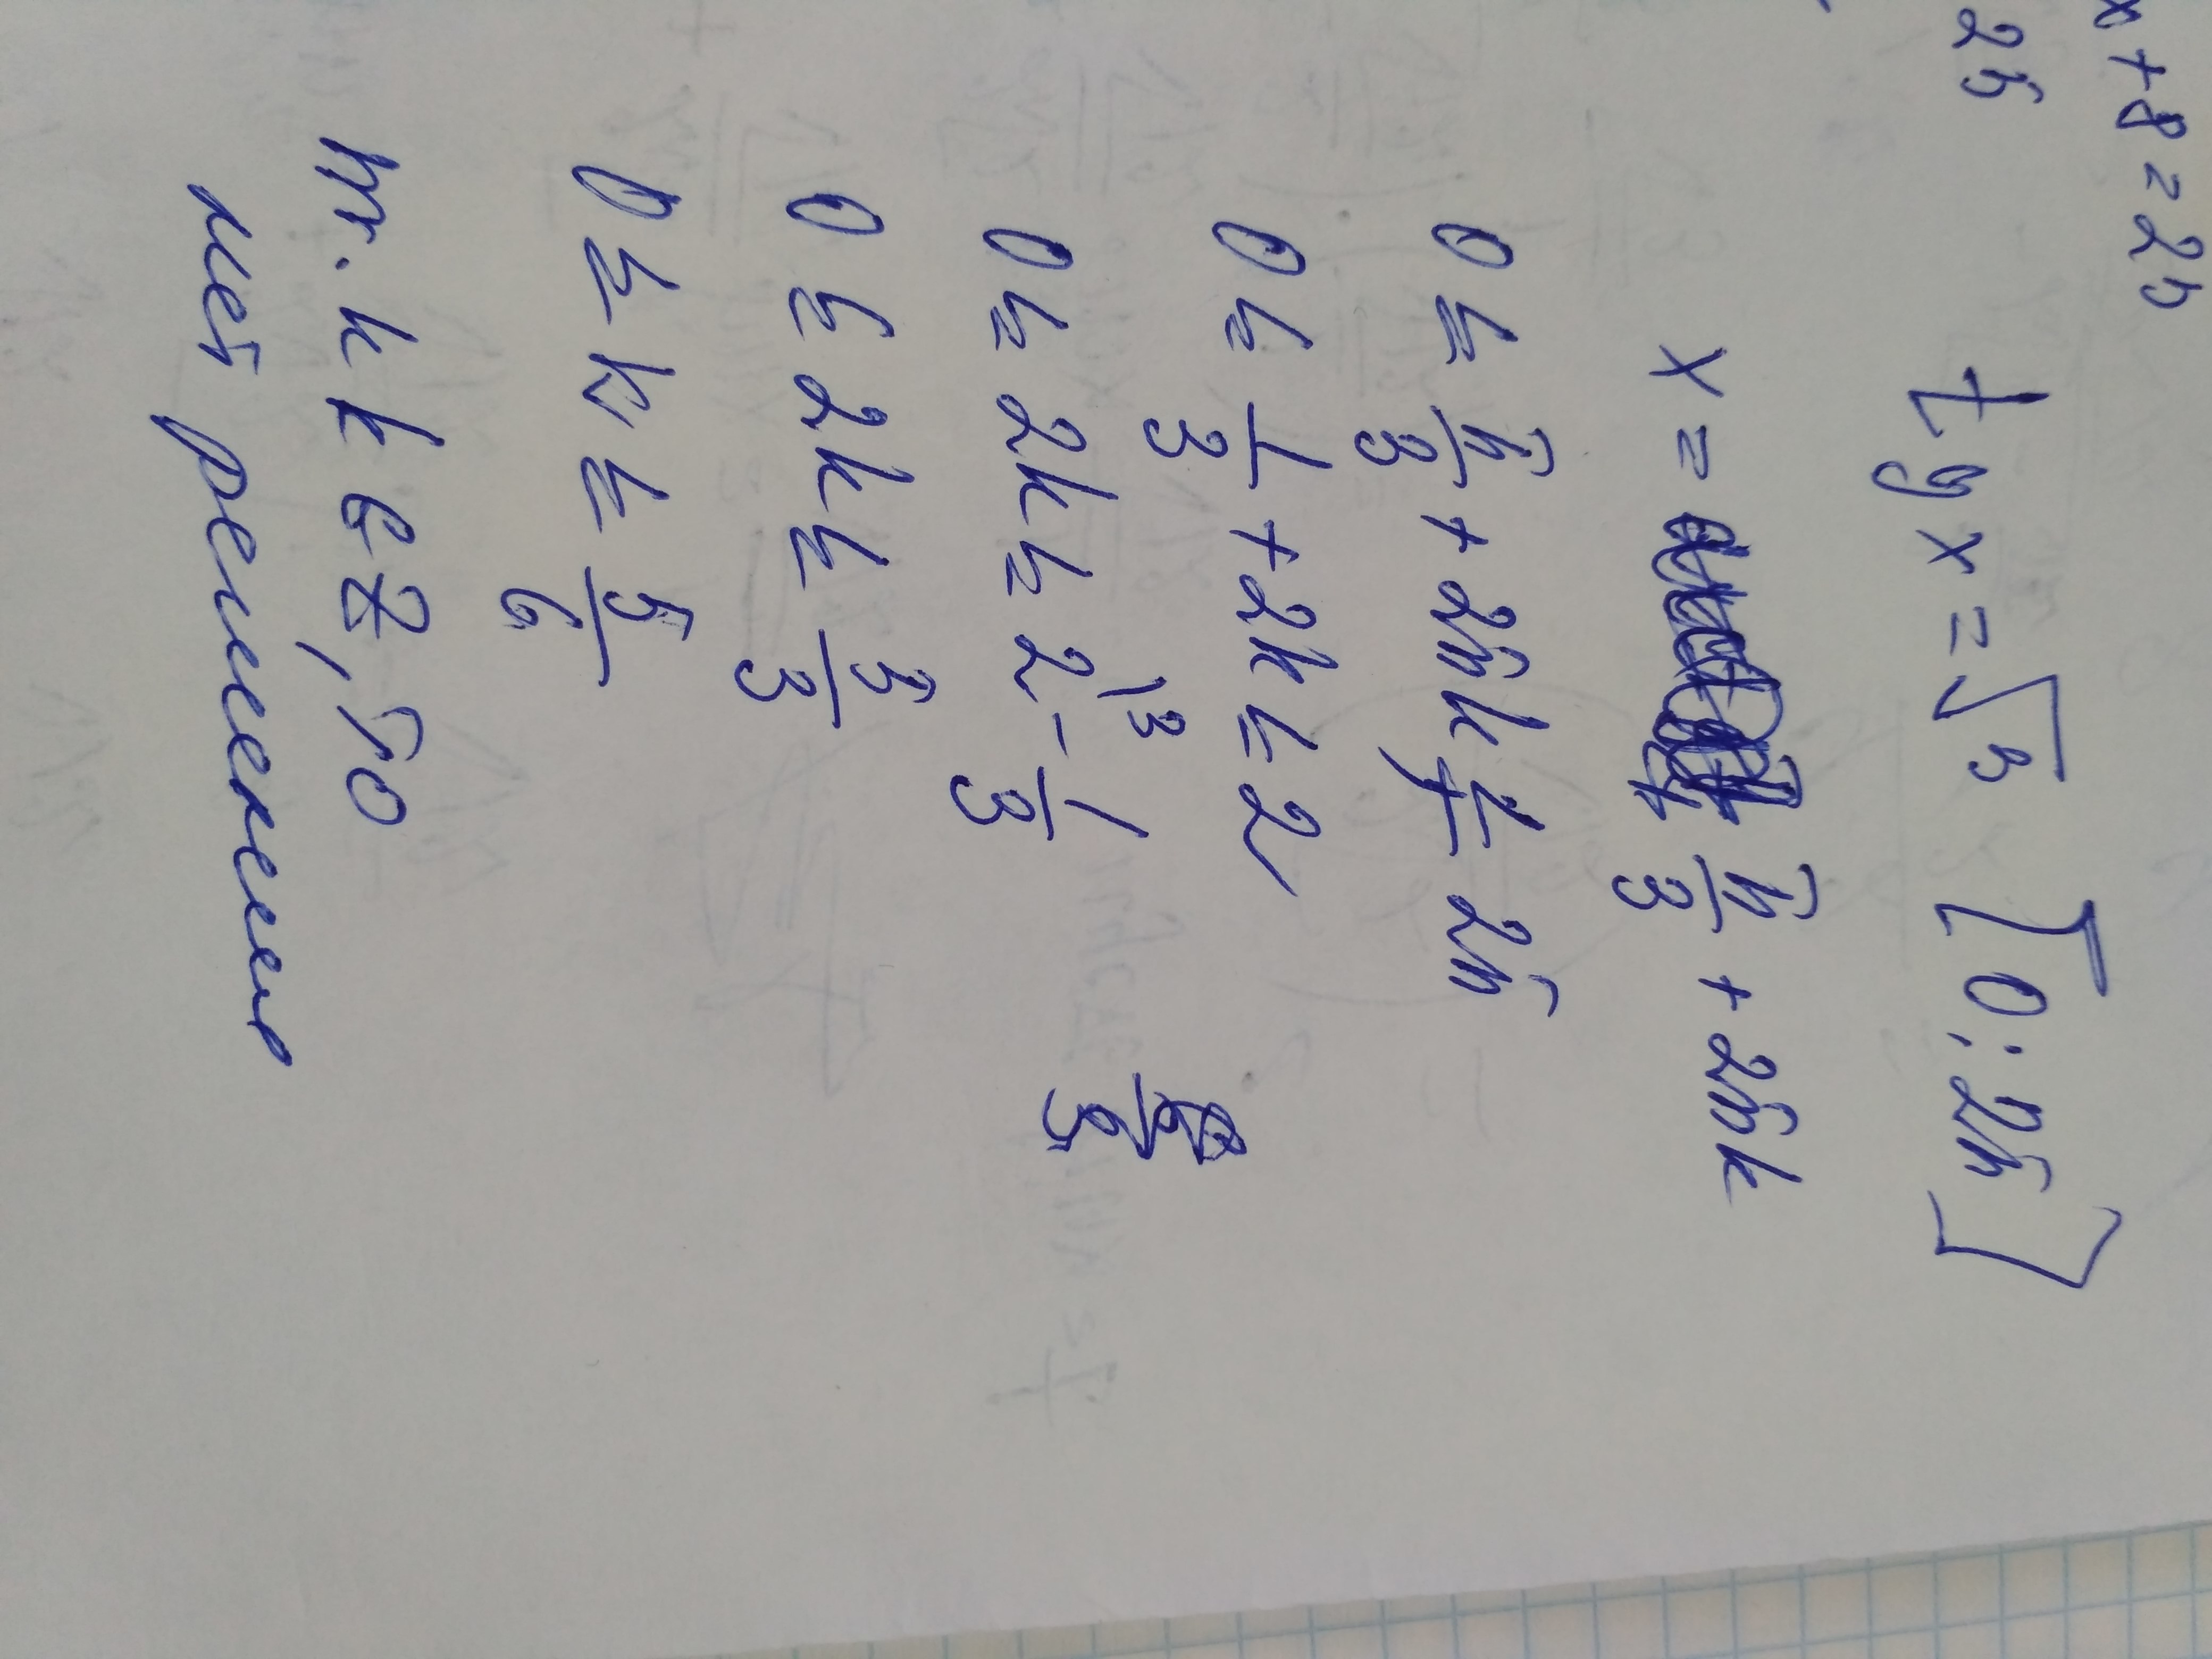 x + 8 = 25
25
tg x = √3 [0; 2π]
x = π/3 + 2πk
0 ≤ π/3 + 2πk ≤ 2π
0 ≤ 1/3 + 2k ≤ 2
0 ≤ 2k ≤ 2 - 1/3
0 ≤ 2k ≤ 5/3
0 ≤ k ≤ 5/6
т.к k ∈ Z, то
нет решения